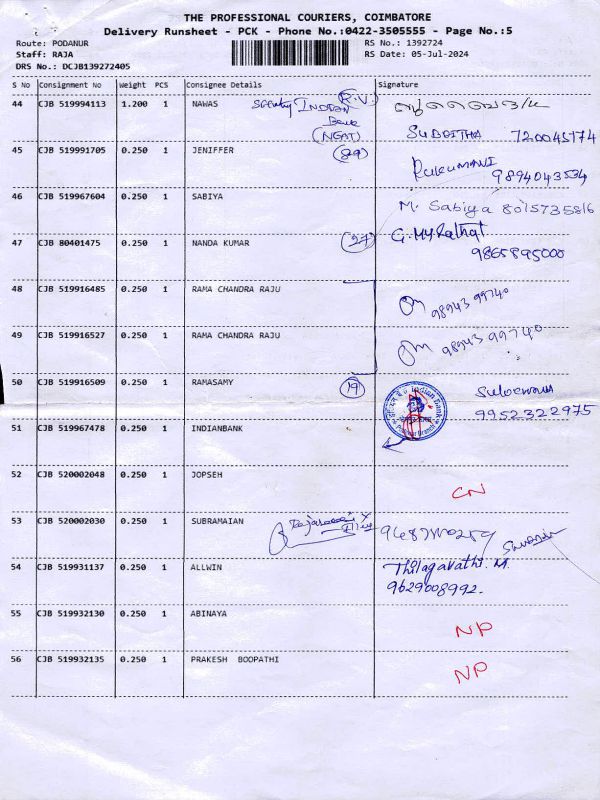 THE PROFESSIONAL COURIERS, COIMBATORE
Delivery Runsheet - PCK - Phone No.:0422-3505555 - Page No.:5
Route: PODANUR RS No.: 1392724
Staff: RAJA RS Date: 05-Jul-2024
DRS No.: DCJB139272405
S No Consignment No Weight PCS Consignee Details Signature
44 CJB 519994113 1.200 1 NAWAS INDIAN Bank (R.V.)
(NGAT) 720045774
45 CJB 519991705 0.250 1 JENIFFER (89) RUKUMANI
9894043534
46 CJB 519967604 0.250 1 SABIYA M. Sabiya 8015735816
47 CJB 80401475 0.250 1 NANDA KUMAR (27)
9865895000
48 CJB 519916485 0.250 1 RAMA CHANDRA RAJU 98943 99740
49 CJB 519916527 0.250 1 RAMA CHANDRA RAJU 98943 99740
50 CJB 519916509 0.250 1 RAMASAMY (19) Indian Bank
9952322975
51 CJB 519967478 0.250 1 INDIANBANK
52 CJB 520002048 0.250 1 JOPSEH CN
53 CJB 520002030 0.250 1 SUBRAMAIAN
54 CJB 519931137 0.250 1 ALLWIN Thilagavathi. M.
9629008992.
55 CJB 519932130 0.250 1 ABINAYA NP
56 CJB 519932135 0.250 1 PRAKESH BOOPATHI NP